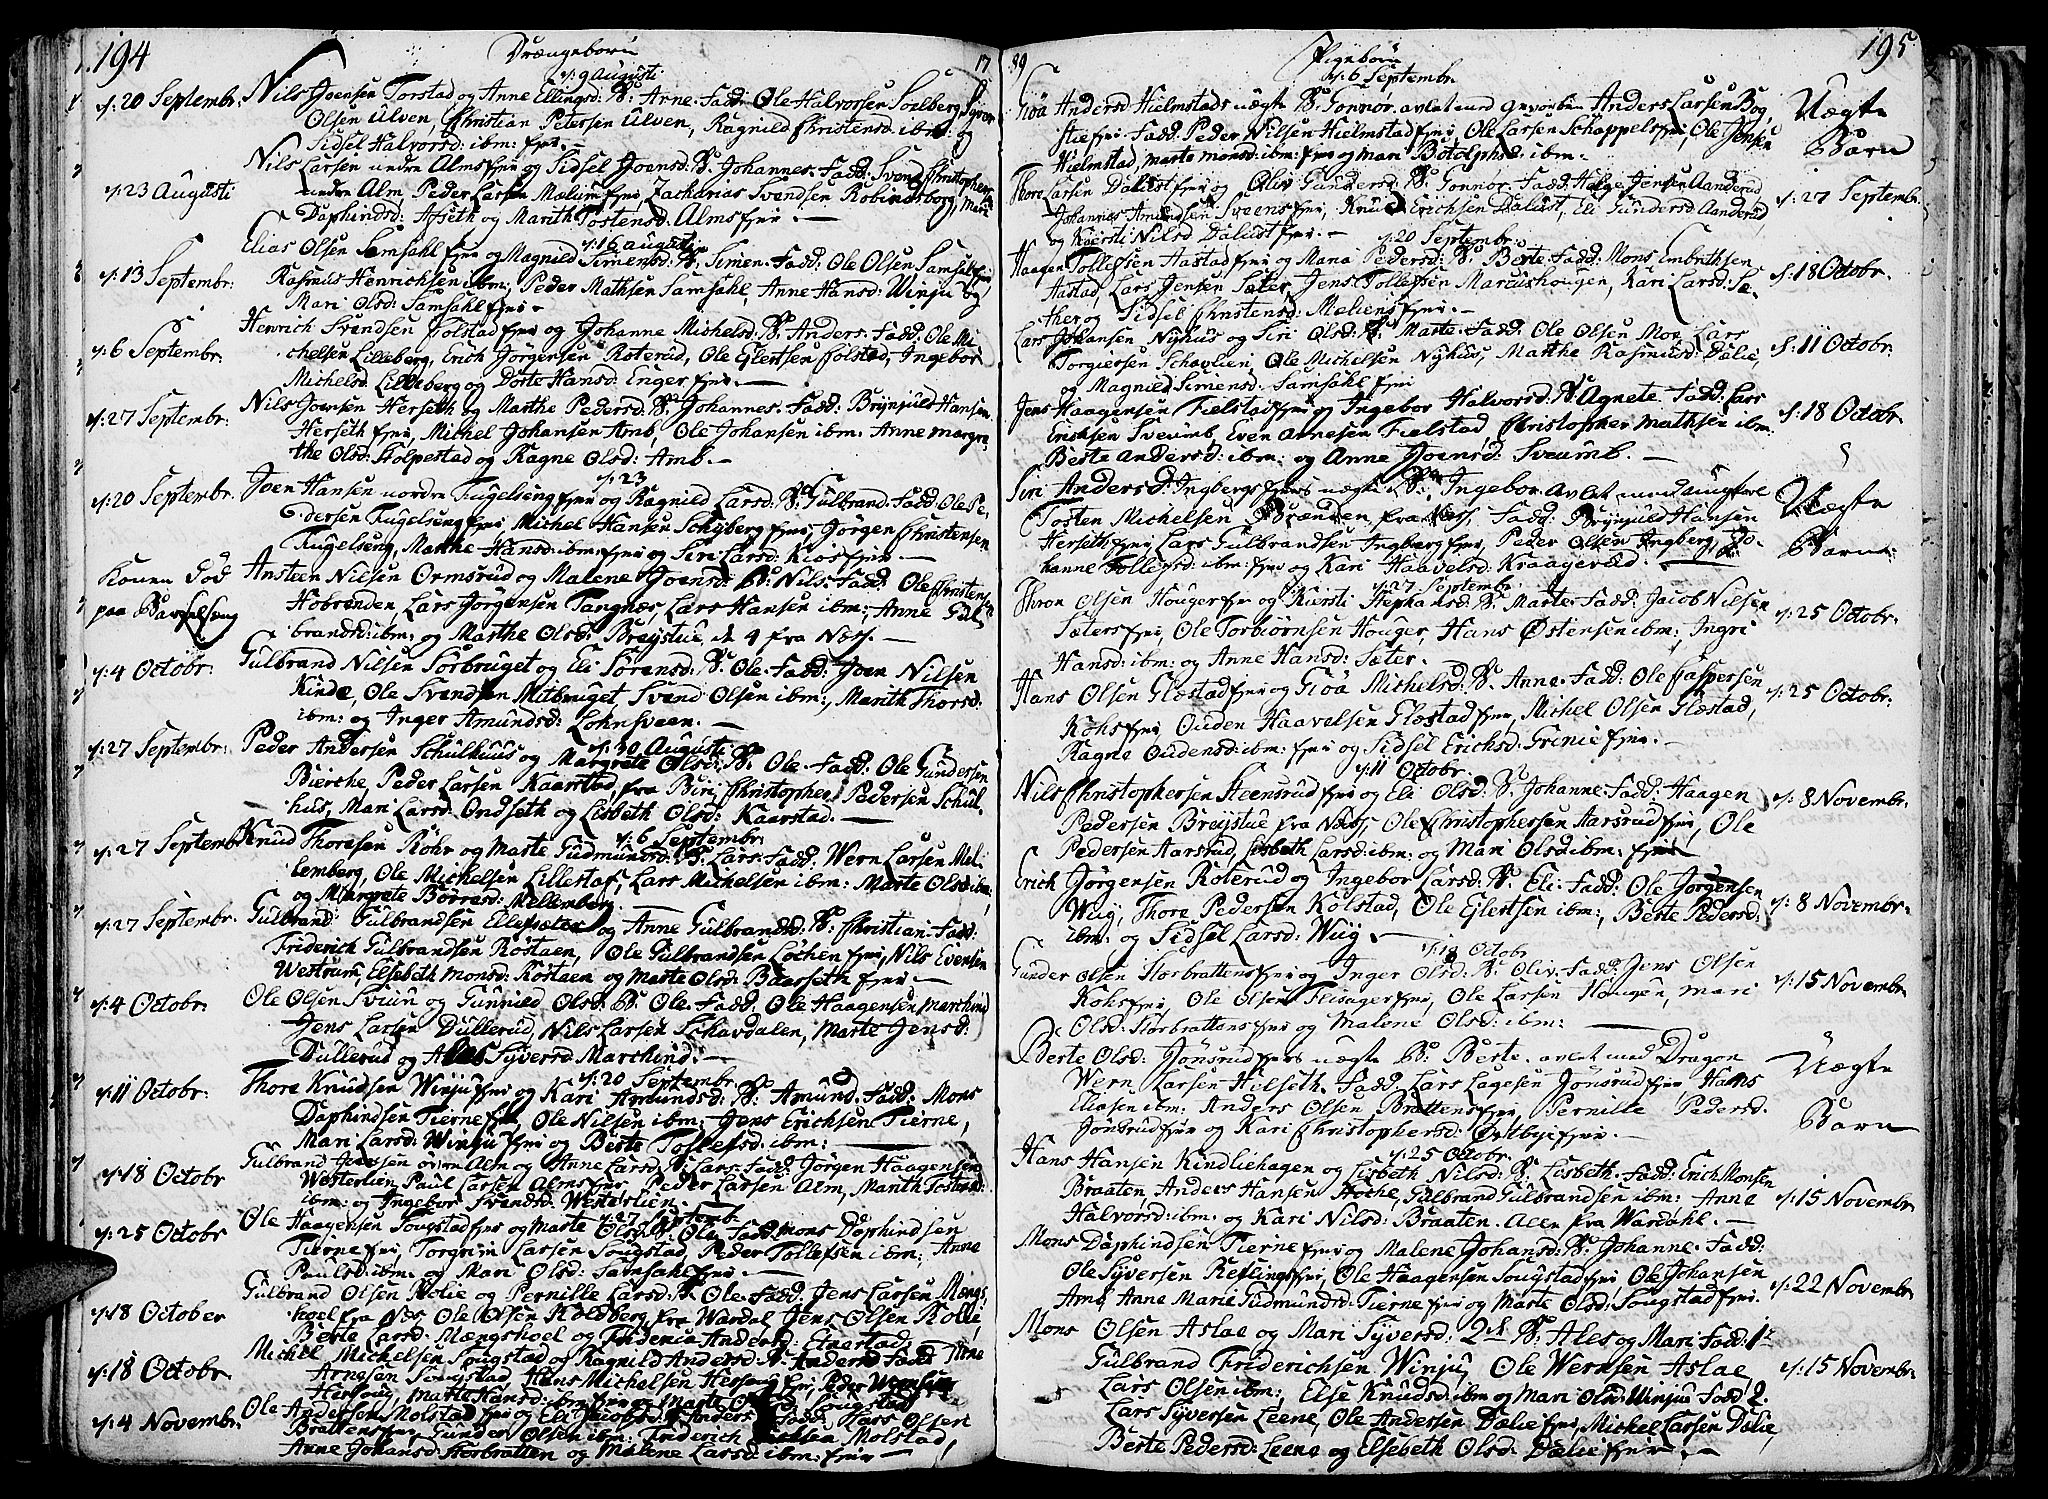 194
Drængebørn
17
d: 9 Augusti
d: 20 Septembr: Nils Joensen Torstad og Anne Ellingsd: B: Arne. Fadd: Ole Halvorsen Solberg, Syver
Olsen Ulven, Christian Petersen Ulven, Ragnild Christensd: ibm: og
Sidsel Halvorsd: ibm: ejer.
Nils Larsen nedre Alms ejer og Sidsel Joensd: B: Johannes. Fadd: Svend Christophers:
d: 23 Augusti
nedre Alm, Peder Larsen Mælum ejer, Zacharias Svendsen Robindsborg, Mari
Daphindsd: Afseth og Marith Tostensd: Alms ejer.
d: 16 Augusti
Elias Olsen Samsahl ejer og Magnild Simensd: B: Simen. Fadd: Ole Olsen Samsahl ejer,
d: 13 Septembr: Rasmus Henrichsen ibm:, Peder Mathsen Samsahl, Anne Hansd: Winju og
Mari Olsd: Samsahl ejer.
Henrich Svendsen Folstad ejer og Johanne Michelsd: B: Anders. Fadd: Ole Mi-
d: 6 Septembr: chelsen Lilleberg, Erich Jörgensen Roterud, Ole Ejlertsen Folstad, Ingebor
Michelsd: Lilleberg og Dorte Hansd: Enger ejer.
d: 27 Septembr: Nils Joensen Herseth og Marthe Pedersd: B: Johannes. Fadd: Brynjuld Hansen
Herseth ejer, Michel Johansen Amb, Ole Johansen ibm: Anne Margre-
the Olsd: Stolpestad og Ragne Olsd: Amb.
d: 23
d: 20 Septembr. Joen Hansen nordre Fugelseng ejer og Ragnild Larsd: B: Gulbrand. Fadd: Ole Pe-
dersen Fugelseng ejer, Michel Hansen Schyberg ejer, Jörgen Christensen
Fugelseng, Marthe Hansd: ibm: ejer og Siri Larsd: Kios ejer.
Konen Död Ansteen Nilsen Ormsrud og Malene Joensd: B: Nils. Fadd: Ole Christens:
paa Barselseng Hobrenden, Lars Jörgensen Tangnæs, Lars Hansen ibm:, Anne Gul-
brandsd: ibm: og Marthe Olsd: Brejstue, de 4 fra Næss.
d: 4 Octobr: Gulbrand Nilsen Sorbruget og Eli Sörensd: B: Ole. Fadd: Joen Nilsen
Kinde, Ole Svendsen Mitbruget, Svend Olsen ibm:, Marith Thorsd:
ibm: og Inger Amundsd: Lohnsveen.
d: 30 Augusti
d: 27 Septembr: Peder Andersen Schulhuus og Margrete Olsd: B: Ole. Fadd: Ole Gundersen
Bierche, Peder Larsen Kaarstad, fra Biri, Christopher Pedersen Schul-
hus, Mari Larsd: Ondseth og Lisbeth Olsd: Kaarstad.
d: 6 Septembr:
d: 27 Septembr: Knud Thoresen Röhr og Marte Gudmundsd: B: Lars. Fadd: Wern Larsen Mel-
lemberg, Ole Michelsen Lillestaf, Lars Michelsen ibm: Marte Olsd: ibm:
og Margrete Börresd: Mellemberg.
d: 27 Septembr: Gulbrand Gulbrandsen Ellefsæter og Anne Gulbrandsd: B: Christian. Fadd:
Friderich Gulbrandsen Röstaen, Ole Gulbrandsen Löchen ejer, Nils Evensen
Westrum, Elsebeth Monsd: Röstaen og Marte Olsd: Baarseth ejer.
d: 4 Octobr: Ole Olsen Sveun og Gunnild Olsd: B: Ole. Fadd: Ole Haagensen Marchind
Jens Larsen Dullerud, Nils Larsen Schavdalen, Marte Jensd:
Dullerud og Ales Syversd: Marchind.
d: 20 Septembr:
d: 11 Octobr: Thore Knudsen Winju ejer og Kari Amundsd: B: Amund. Fadd: Mons
Daphindsen Tierne ejer, Ole Nilsen ibm: Jens Erichsen Tierne,
Mari Larsd: Winju ejer og Berte Tollefsd: ibm:
Gulbrand Jensen övre Alm og Anne Larsd: B: Lars. Fadd: Jörgen Haagensen
d: 18 Octobr Westerlien, Paul Larsen Alms ejer, Peder Larsen Alm, Marith Tostensd:
ibm: og Ingebor Svendsd: Westerlien.
d: 27 Septemb:
d: 25 Octobr Ole Haagensen Sougstad ejer og Marte Olsd: B: Ole. Fadd: Mons Daphindsen
Tierne ejer, Torgrim Larsen Sougstad, Peder Tollefsen ibm: Anne
Paulsd: ibm: og Mari Olsd: Samsahl ejer.
Gulbrand Olsen Kolie og Pernille Larsd: B: Ole. Fadd: Jens Larsen Mængs-
d: 18 October hoel fra Næs, Ole Olsen Koldberg, fra Wardal, Jens Olsen Kolie
Berte Larsd: Mængshoel og Andersd:
d: 18 Octobr. Michel Michelsen Sougstad og Ragnild Andersd: B: Anders. Fadd: Arne
Arnesen Sougstad, Hans Michelsen
d: 4 Novembr: Ole Andersen Molstad ejer og Eli Jacobsd: B: Anders. Fadd: Hans Olsen
Brattens ejer, Gunder Olsen ibm: Friderich Molstad,
Anne Johansd: Storbratten og Malene Larsd: ibm: ejer
89
Pigebörn
195
d: 6 Septembr:
Giöa Andersd: Hielmstads uægte B: Gonnor, avlet med Anders Larsen Bog
Fadd: Peder Nilsen Hielmstad ejer, Ole Larsen Schappels ejer, Ole Jensen
Hielmstad, Marte Monsd: ibm: ejer og Mari Botolphsd: ibm:
Uægte
Barn
Thore Larsen Dalust ejer og Oliv Gundersd: B: Gonnor. Fadd: Helge Jensen Aanderud
Johannes Amundsen Sveens ejer, Knud Erichsen Dalust, Eli Gundersd: Aanderud,
og Kiersti Nilsd Dalust ejer.
d: 27 Septembr.
d: 20 Septembr:
Haagen Tollefsen Hastad ejer og Maria Pedersd: B: Berte. Fadd: Mons Embrethsen
Hastad, Lars Jensen Sæter, Jens Tollefsen Marcushougen, Kari Larsd: Sæ-
ther og Sidsel Christensd: Mæliens ejer.
d: 18 Octobr.
Lars Johansen Nyhus og Siri Olsd: B: Marte. Fadd: Ole Olsen Moe, Lars
Torgiersen Schavlien, Ole Michelsen Nyhus, Marthe Rasmusd: Dalie,
og Magnild Simensd: Samsahl ejer
d: 11 Octobr:
Jens Haagensen Fielstad ejer og Ingebor Halvorsd: B: Agnete. Fadd: Lars
Erichsen Sveumb, Even Arnesen Fielstad, Christopher Mathsen ibm:
Berte Andersd: ibm: og Anne Joensd: Sveumb.
d: 18 Octobr.
Siri Andersd: Ingbergs ejers uægte B: Ingebor, avlet med
Tosten Michelsen Brænden fra Næss, Fadd: Brynjuld Hansen
Herseth ejer, Lars Gulbrandsen Ingberg ejer, Peder Olsen Ingberg, Jo-
hanne Tollefsd: ibm: ejer og Kari Haavelsd: Kraageræd.
Uægte
Barn:
d: 27 Septembr:
Thron Olsen Houger ejer og Kiersti Stephansd: B: Marte. Fadd: Jacob Nilsen
Sæters ejer, Ole Torbiörnsen Houger, Hans Östensen ibm:, Ingri
Hansd: ibm: og Anne Hansd: Sæter.
d: 25 Octobr:
Hans Olsen Glæstad ejer og Giöa Michelsd: B: Anne. Fadd: Ole Caspersen
Kohs ejer, Ouden Haavelsen Glæstad ejer, Michel Olsen Glæstad,
Ragne Oudensd: ibm: ejer og Sidsel Erichsd: Grinie ejer.
d: 25 Octobr:
d: 11 Octobr:
Nils Christophersen Steensrud ejer og Eli Olsd: B: Johanne. Fadd: Haagen
Pedersen Brejstue fra Næss, Ole Christophersen Aarsrud ejer, Ole
Pedersen Aarsrud, Lisbeth Larsd: ibm: og Mari Olsd: ibm: ejer
d: 8 Novembr.
Erich Jörgensen Roterud og Ingebor Larsd: B: Eli. Fadd: Ole Jörgensen
Wiig, Thore Pedersen Kolstad, Ole Ejlertsen ibm:, Berte Pedersd:
ibm: og Sidsel Larsd: Wiig.
d: 8 Novembr.
d: 18 Octobr
Gunder Olsen Storbrattens ejer og Inger Olsd: B: Oliv. Fadd: Jens Olsen
Kohs ejer, Ole Olsen Flisager ejer, Ole Larsen Hougen, Mari
Olsd: Storbrattens ejer og Malene Olsd: ibm:
d: 15 Novembr.
Berte Olsd: Jönsrud ejers uægte B: Berte. avlet med Dragon
Wern Larsen Hilseth. Fadd: Lars Lagesen Jönsrud ejer, Hans
Eliasen ibm: Anders Olsen Brattens ejer, Pernille Pedersd.
Jönsrud ejer og Kari Christophersd: Östbyie ejer.
Uægte
Barn
d: 25 Octobr.
Hans Hansen Kindliehagen og Lisbeth Nilsd: B: Lisbeth. Fadd: Erich Monsen
Braaten, Anders Hansen Hoche, Gulbrand Gulbrandsen ibm: Anne
Halvorsd: ibm: og Kari Nilsd: Braaten. Alle fra Wardahl.
d: 15 Novembr.
Mons Daphindsen Tierne ejer og Malene Johansd: B: Johanne. Fadd:
Ole Syversen Reflings ejer, Ole Haagensen Sougstad ejer, Ole Johansen
Amb, Anne Marie Gudmundsd: Tierne ejer og Marte Olsd: Sougstad ejer.
d: 22 Novembr.
Mons Olsen Aslae og Mari Syversd: 2 B: Ales og Mari Fadd: 1
Gulbrand Friderichsen Winju, Ole Wernsen Aslae
Lars Olsen ibm:, Else Knudsd: ibm og Mari Olsd: Winju Fadd: 2.
Lars Syversen Leene, Ole Andersen Dælie ejer, Michel Larsen Dælie,
Berte Pedersd: Leene og Elsebeth Olsd: Dælie ejer.
d: 15 Novembr.